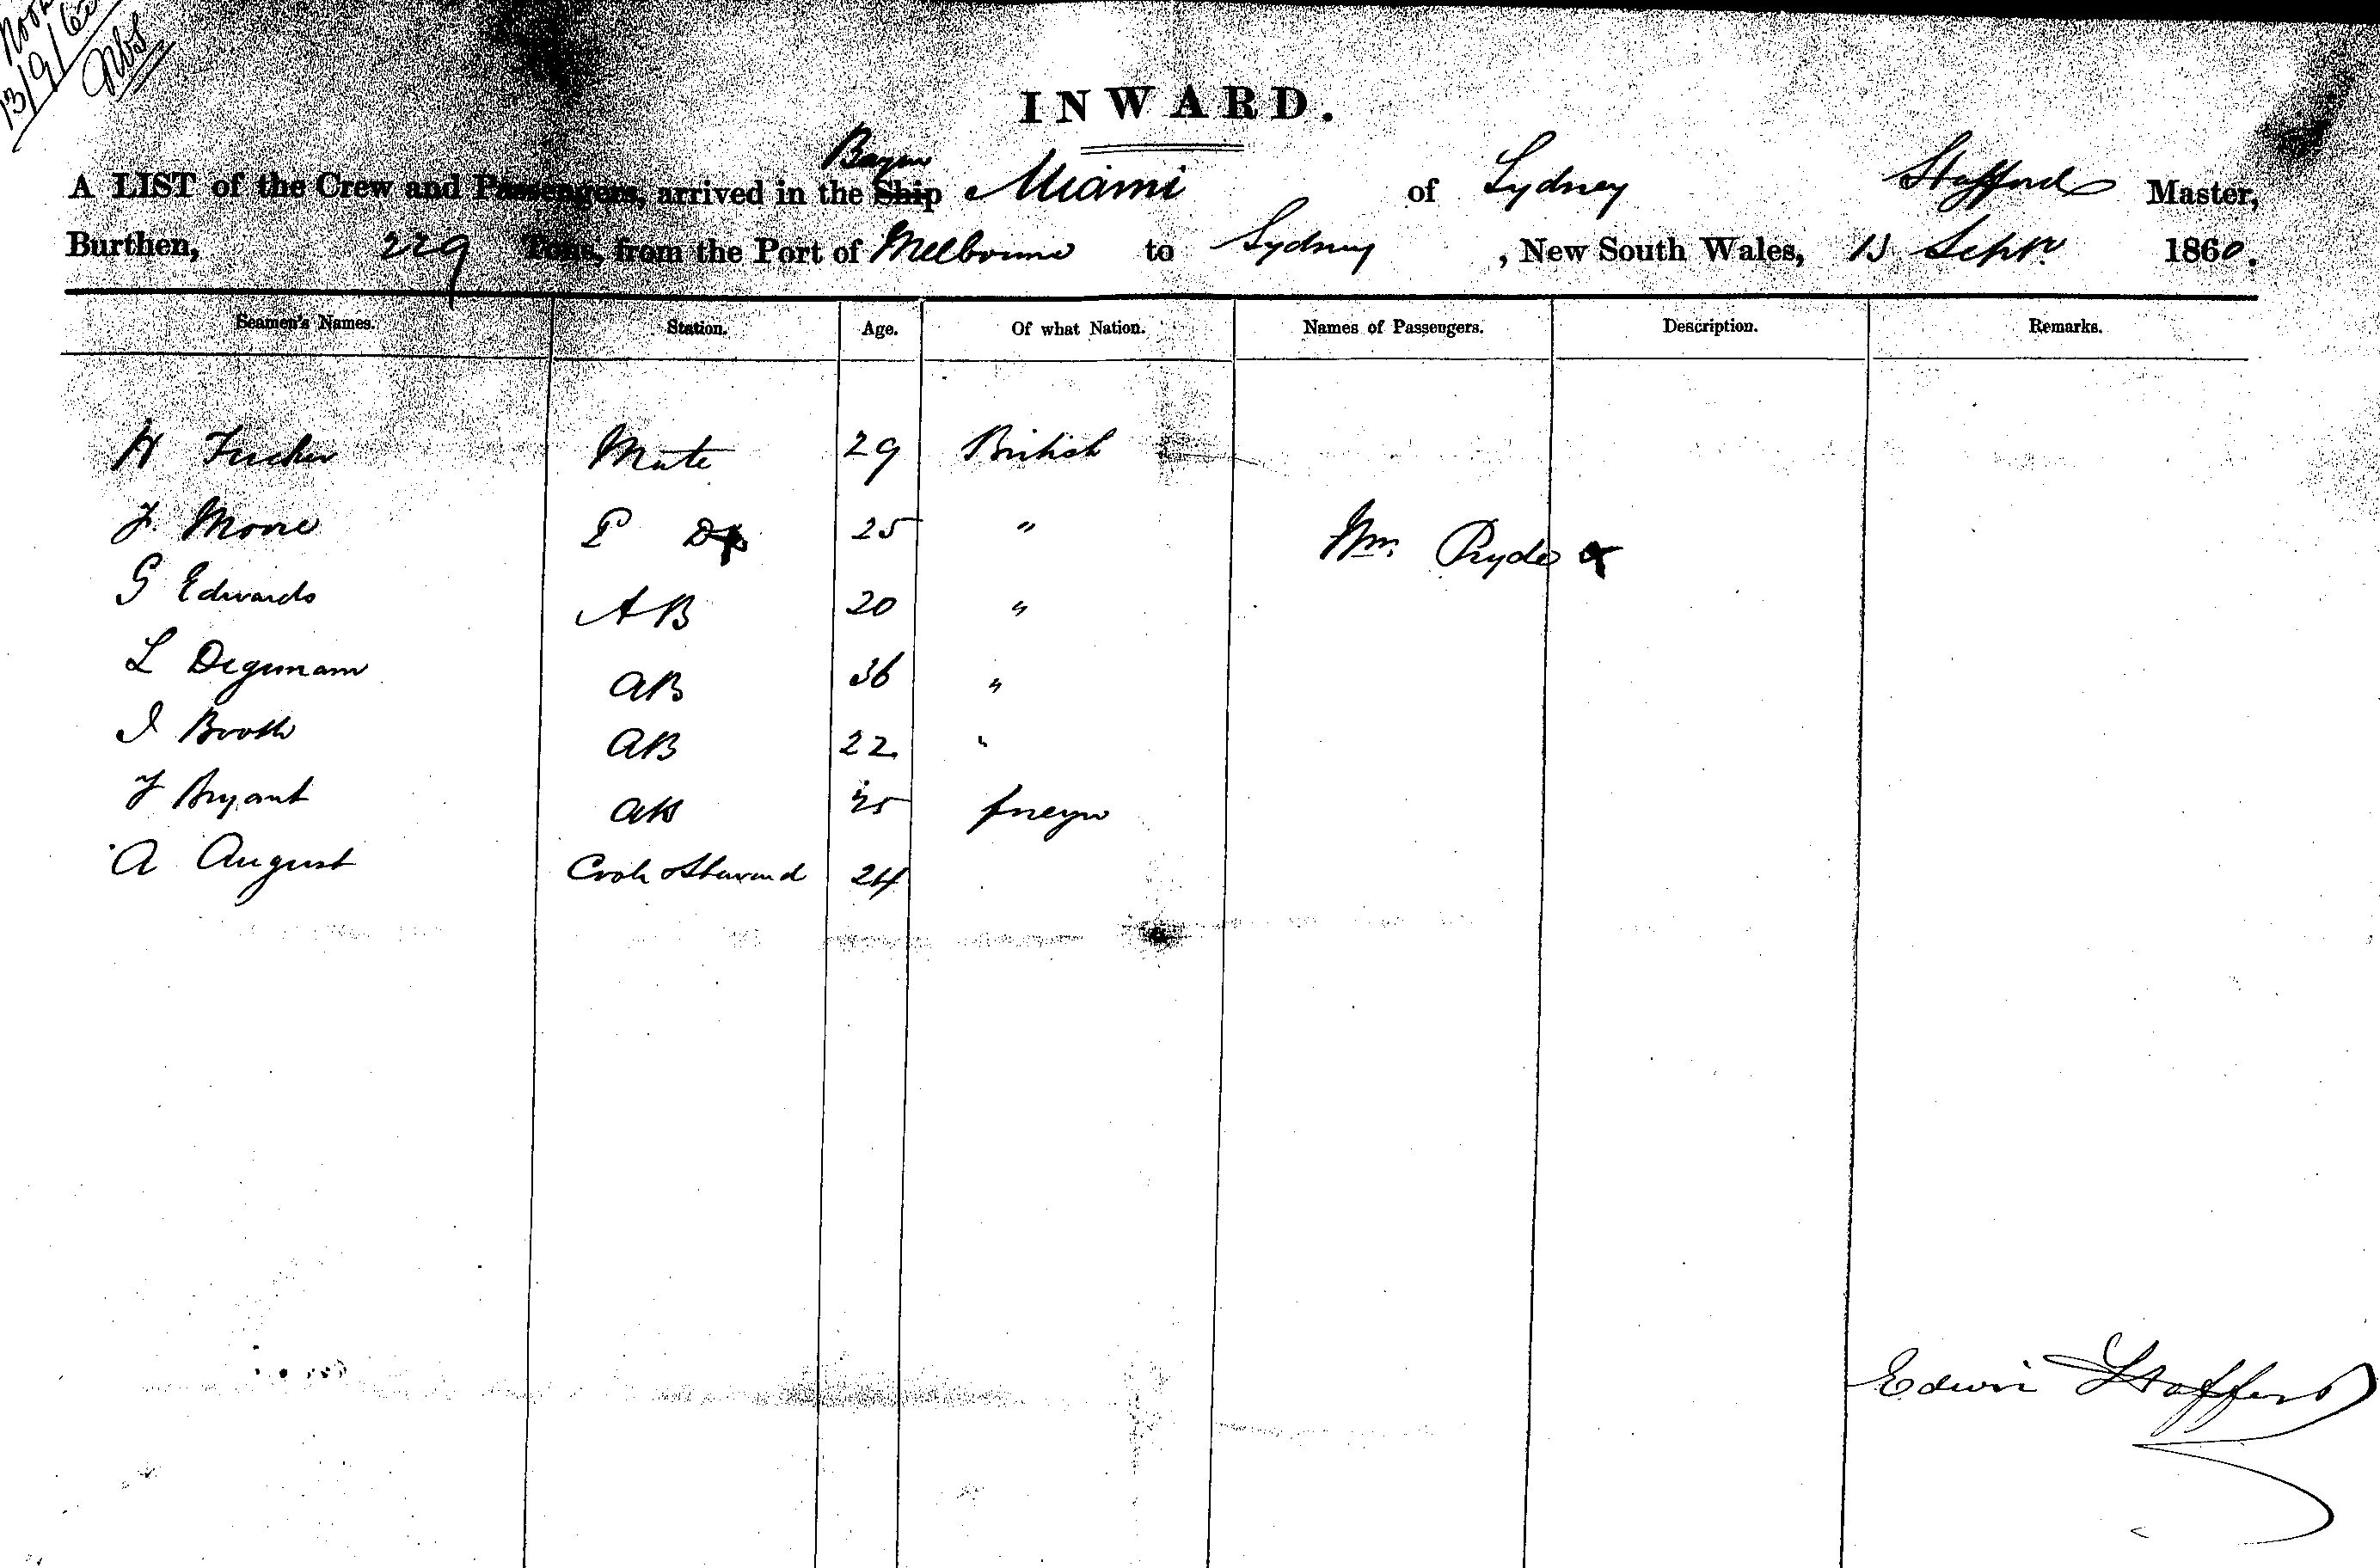 Noon
13/9/60
INWARD.
A LIST of the Crew and Passengers, arrived in the Ship Miami of Sydney Stafford Master,
Burthen, 229 Tons, from the Port of Melbourne to Sydney, New South Wales, 13 Septr. 1860.
Seamen's Names. Station. Age. Of what Nation. Names of Passengers. Description. Remarks.
H Tucker Mate 29 British
J. Moore 25 "
Wm. Pryde
G Edwards AB 20 "
L AB 36 "
J Booth AB 22 "
J Bryant AB 25
A August Cook & Steward 24
Edwin Stafford